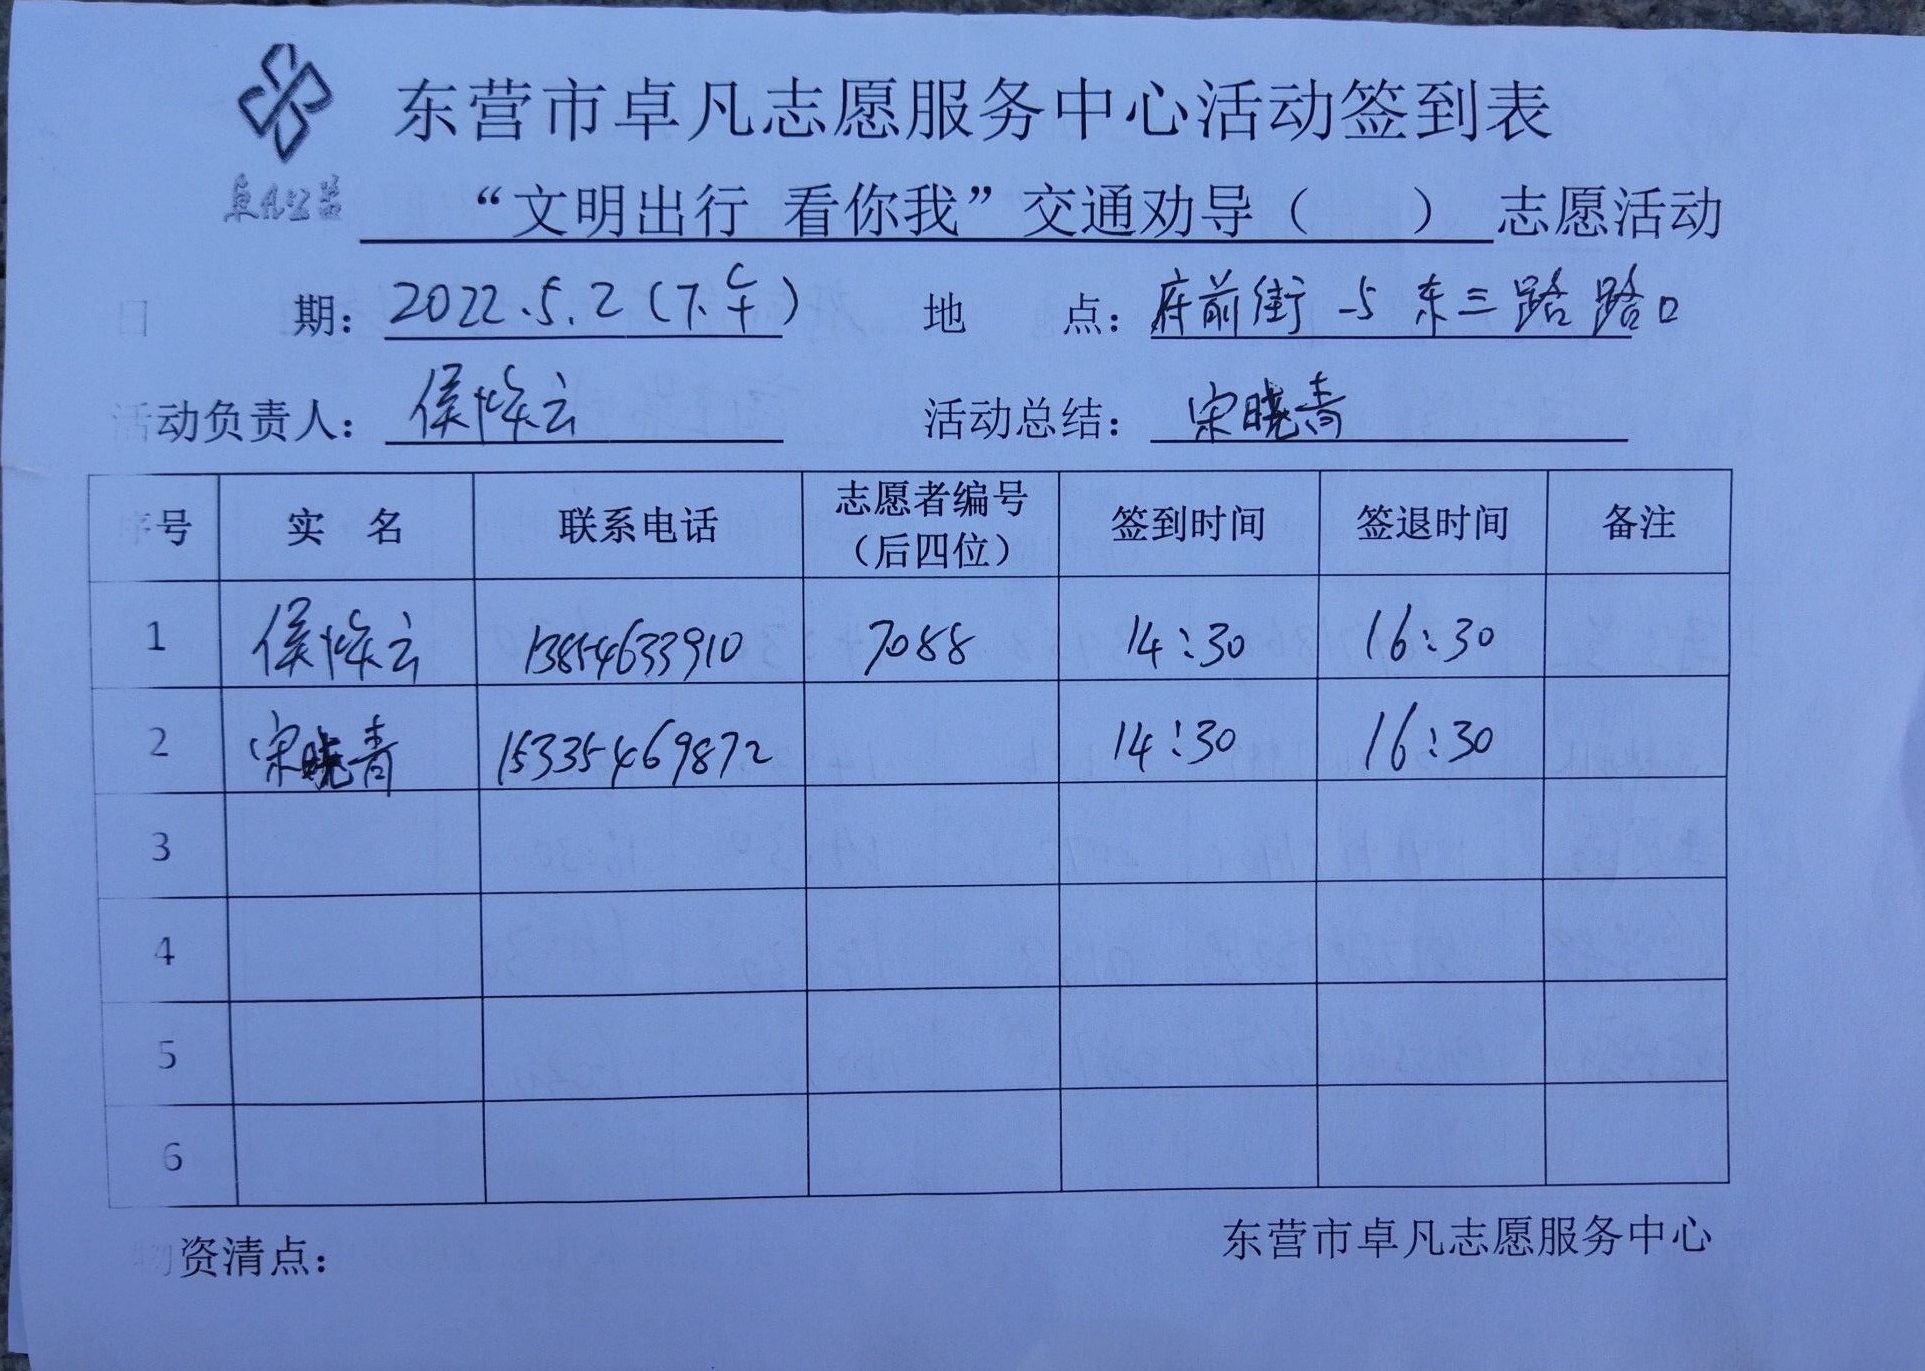 东营市卓凡志愿服务中心活动签到表
卓凡公益
“文明出行 看你我”交通劝导（ ）志愿活动
日 期：2022.5.2（下午） 地 点：府前街与东三路路口
活动负责人：侯焕云 活动总结：宋晓青
序号 实 名 联系电话 志愿者编号（后四位） 签到时间 签退时间 备注
1 侯焕云 13854633910 7088 14:30 16:30
2 宋晓青 15335469872 14:30 16:30
3
4
5
6
物资清点： 东营市卓凡志愿服务中心